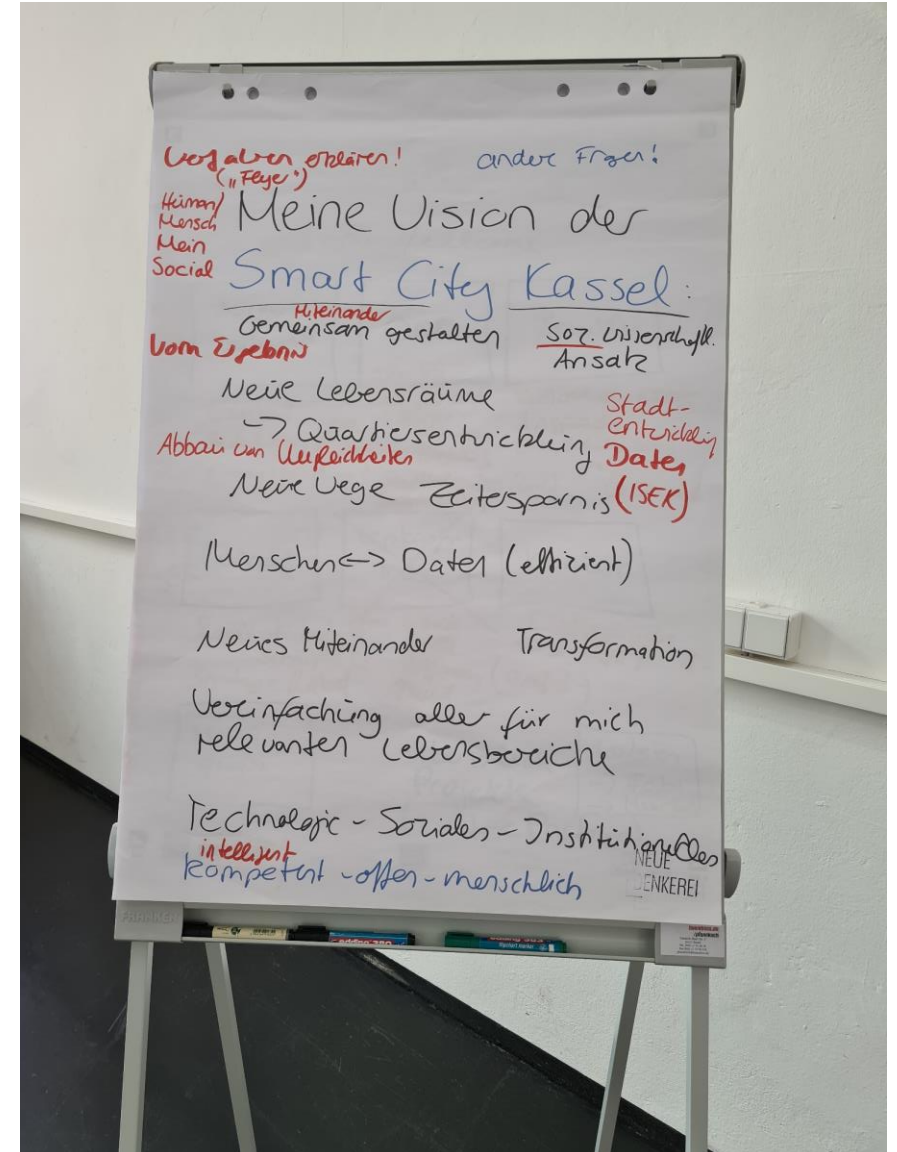 Vorhaben erklären!
andere Fragen!
("Flyer")
Human/
Mensch
Mein
Social
Meine Vision der
Smart City Kassel:
Miteinander
Gemeinsam gestalten
Soz. wissenschaftl.
Ansatz
Vom Ergebnis
Neue Lebensräume
-> Quartiersentwicklung
Stadt-
entwicklung
Daten
(ISEK)
Abbau von Ungleichheiten
Neue Wege Zeitersparnis
Menschen <-> Daten (effizient)
Neues Miteinander Transformation
Vereinfachung aller für mich
relevanten Lebensbereiche
Technologie - Soziales - Institutionelles
intelligent
kompetent - offen - menschlich
NEUE
DENKEREI
FRANKEN